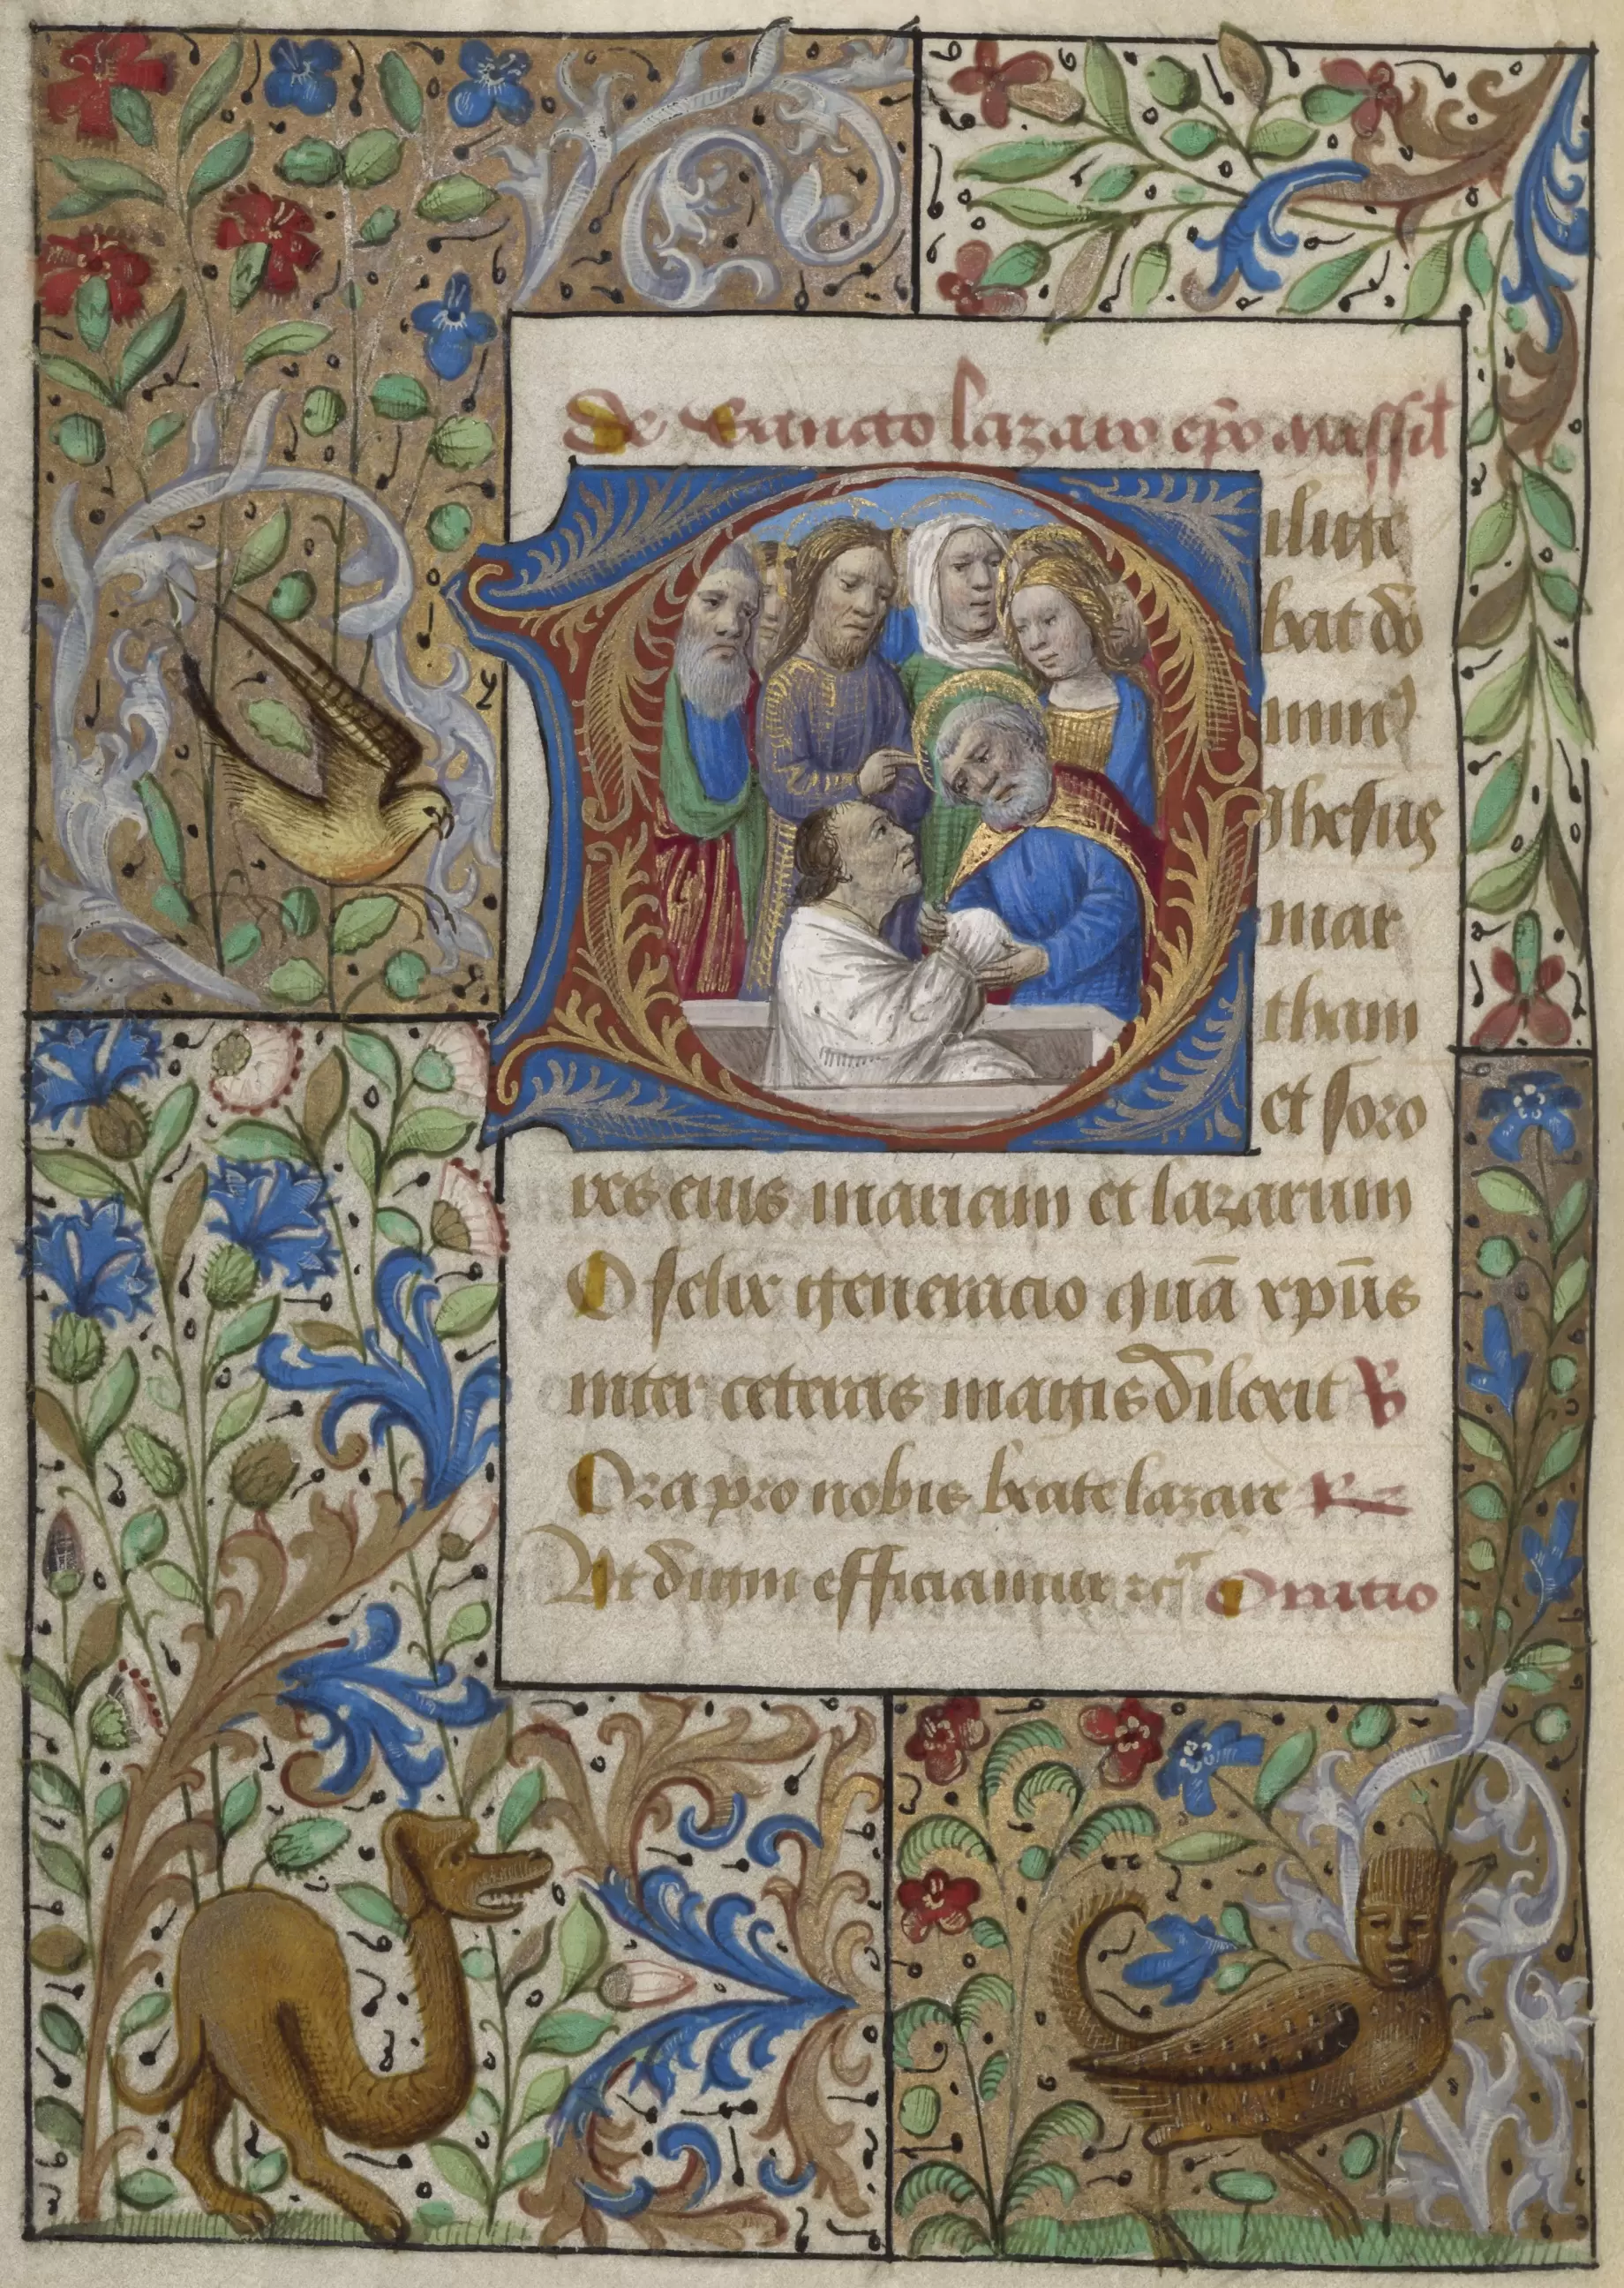 De sancto lazaro ep̄o massil̄
Dilige
bat do
minus
Jhesus
mar
tham
et soro
res eius mariam et lazarum
O felix generacio quā xp̄us
inter ceteras magis dilexit ℣
Ora pro nobis beate lazare ℟
Ut digni efficiamur ⁊c̄ Oratio